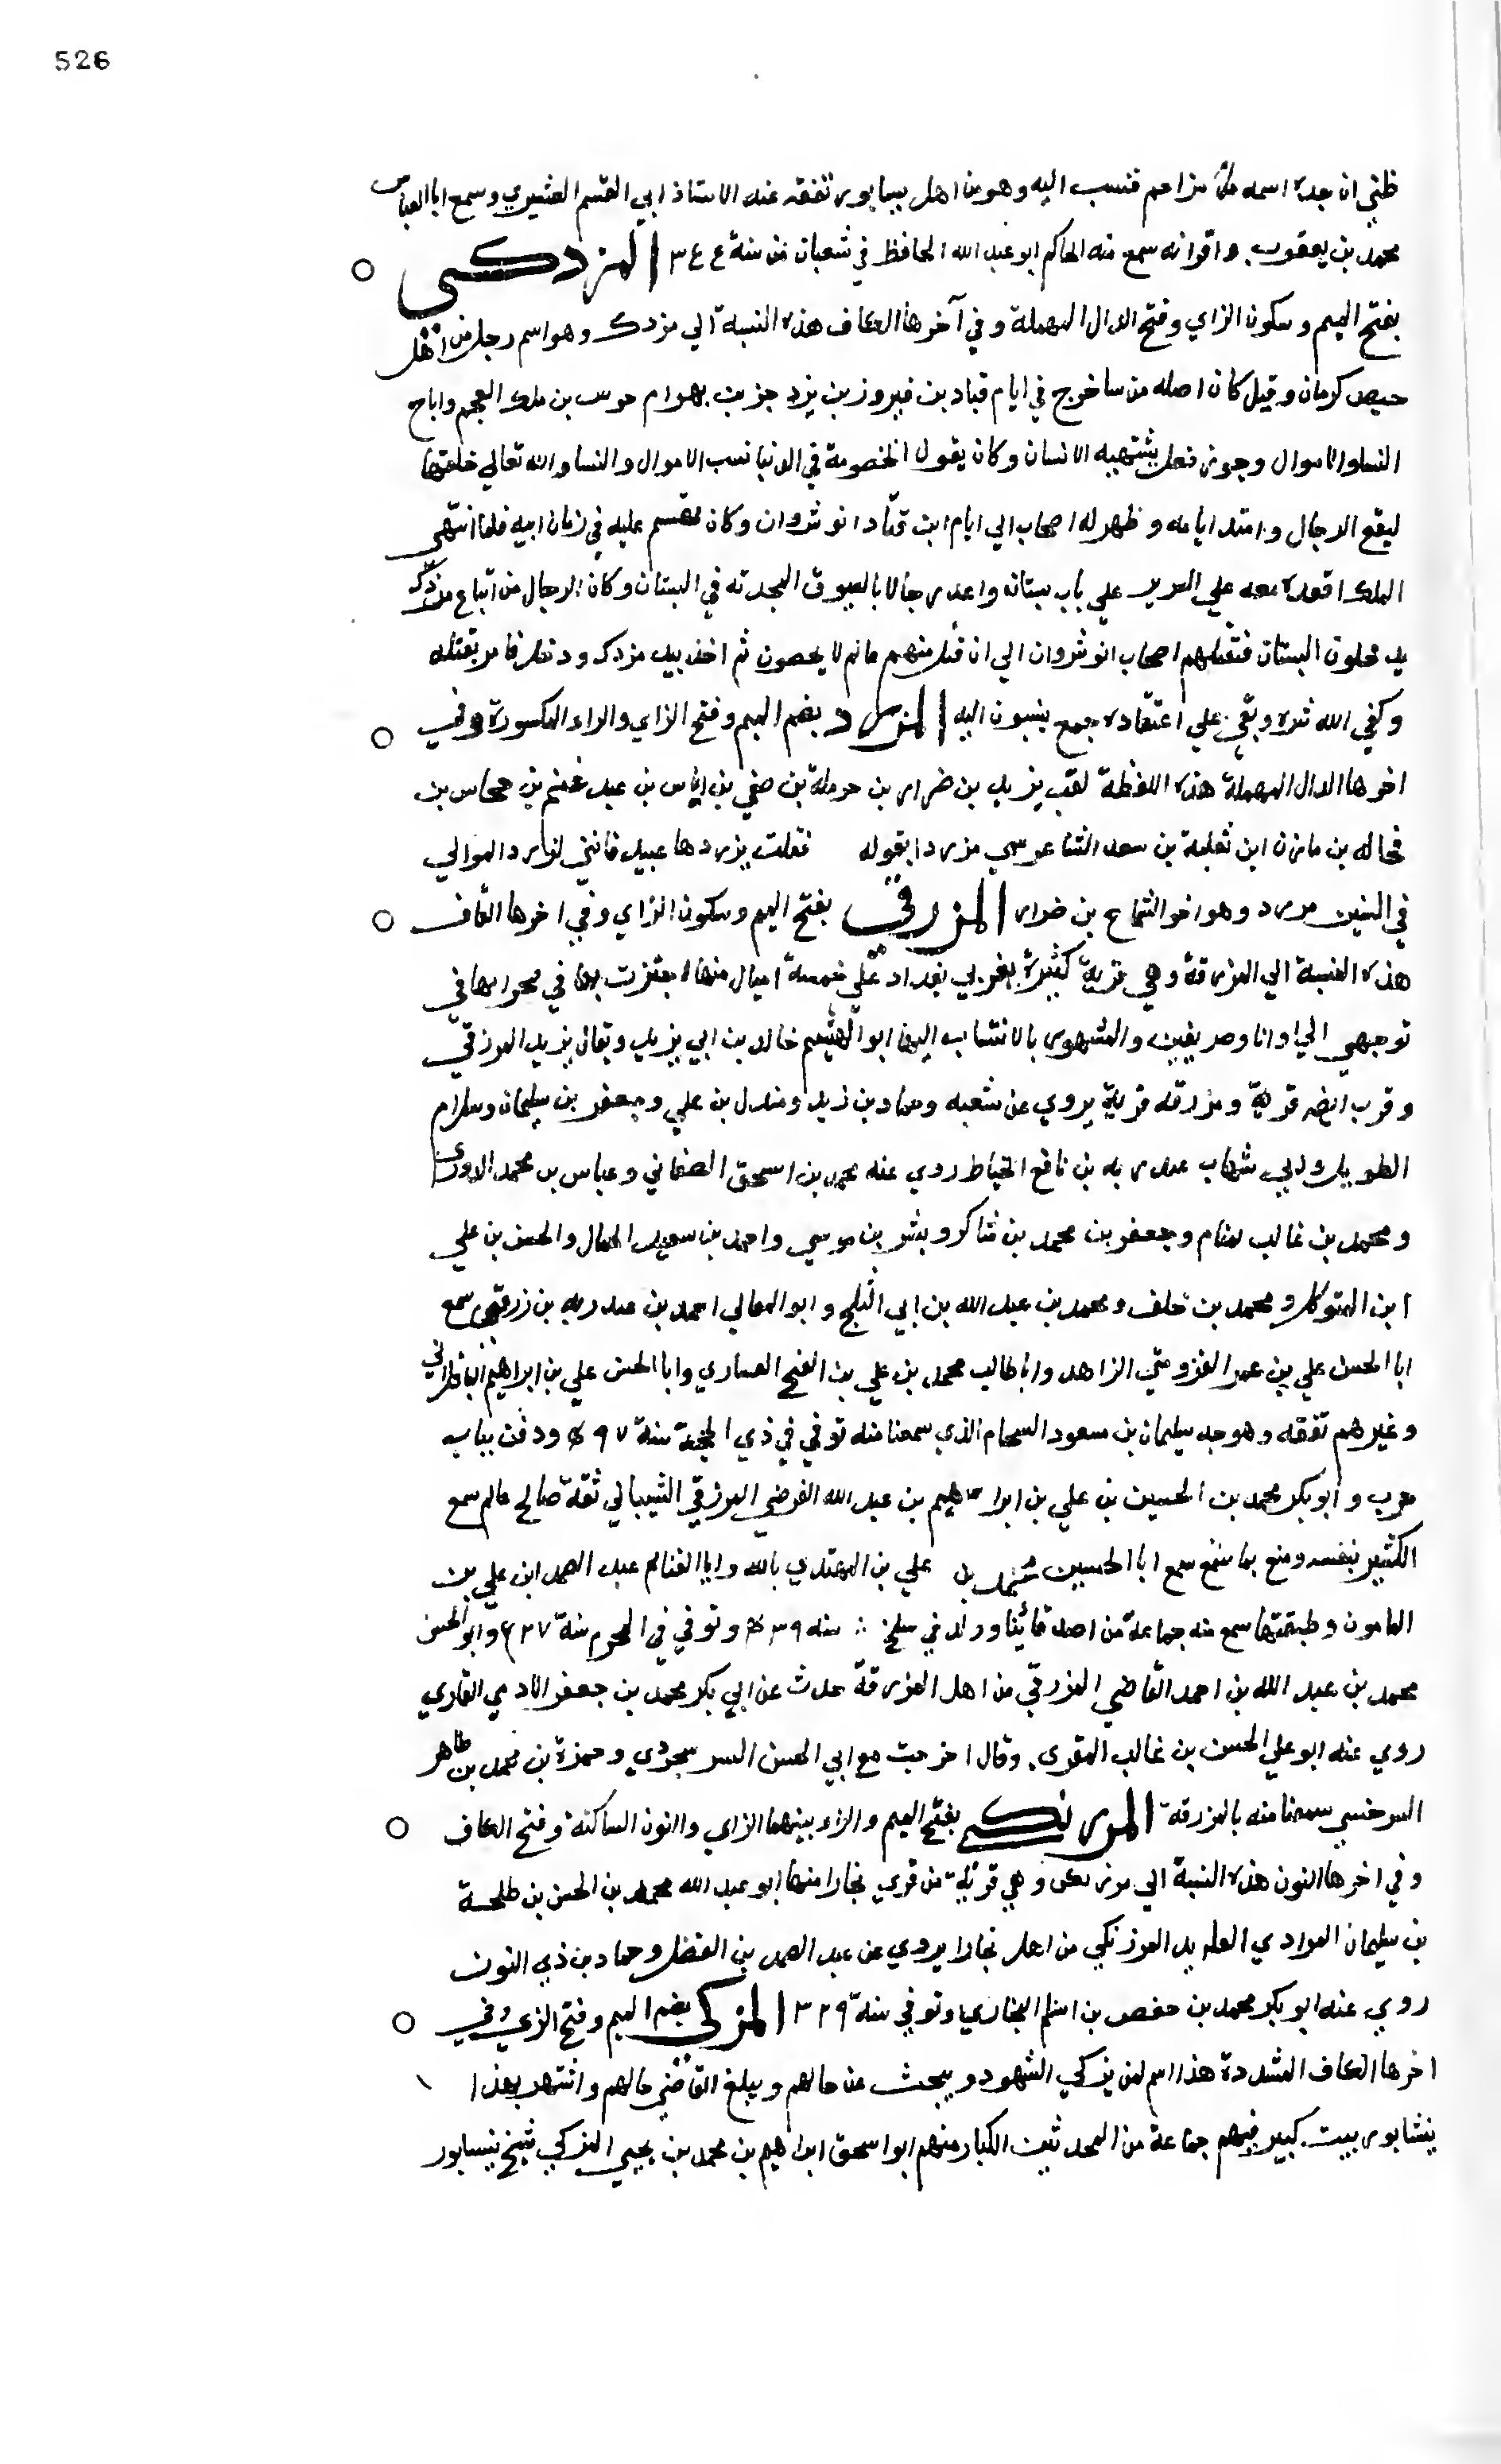 526
ظني ان جده اسمه مزاحم فنسب اليه وهو من اهل نيسابور تفقه عند الاستاذ ابي القسم القشيري وسمع ابا العباس
محمد بن يعقوب واقرانه سمع منه الحاكم ابو عبد الله الحافظ في شعبان من سنة ٣٤٤ المزدكي
بفتح الميم وسكون الزاي وفتح الدال المهملة وفي آخرها الكاف هذه النسبة الي مزدك وهو اسم رجل من اهل
كرمان وقيل كان اصله من سا خرج في ايام قباد بن فيروز بن يزد جز بن بهرام بن ملك العجم واباح
النسا والاموال وجوز فعل يشتهيه الانسان وكان يقول الخصومة في الدنيا نسب الاموال والنسا والله تعالي خلقتها
ليقع الرجال وامتد ايامه وظهر له اصحاب الي ايام ابن قباد انو شروان وكان يقسم عليه في زمان ابيه فلما انتهي
الملك اقعده معه علي السرير علي باب بستانه واعد رجالا بالسيوف في البستان وكان الرجال من اتباع مزدك
يدخلون البستان فتقتلهم اصحاب انو شروان الي ان قتل منهم مالم لا يحصون ثم اخذ بيد مزدك ودخل فامر بقتله
وكفي الله شره وبقي علي اعتقاده جمع ينسبون اليه المزرد بضم الميم وفتح الزاي والراء المكسورة وفي
اخرها الدال المهملة هذه اللفظة لقب يزيد بن ضرار بن حرملة بن صفي بن اياس بن عبد غنم بن جحاش بن
بجاله بن مازن ابن ثعلبة بن سعد الشاعر سمي مزردا بقوله فقلت يزردها عبيد فانني لزرد الموالي
في السنين مزرد وهو اخو الشماخ بن ضرار المزرقي بفتح الميم وسكون الزاي وفي اخرها القاف
هذه النسبة الي المزرقة وهي قرية كبيرة بغربي بغداد علي خمسة اميال منها اجتزت بها في صحرائها في
توجهي الي اوانا وصريفين والمشهور بالانتساب اليها ابو الهيثم خالد بن ابي يزيد ويقال بن يزيد المزرقي
وقرب قرية ومزرقه قرية يروي عن شعبه وحماد بن زيد ومندل بن علي وجعفر بن سليمان وسلام
الطويل وابي شهاب عبد ربه بن نافع الخياط روي عنه محمد بن اسحق الصغاني وعباس بن محمد الدوري
ومحمد بن غالب تمتام وجعفر بن محمد بن شاكر وبشر بن موسي واحمد بن سعيد الجمال والحسن بن علي
ابن المتوكل ومحمد بن خلف ومحمد بن عبد الله بن ابي الثلج وابو المعالي احمد بن عبد ربه بن زرقي سمع
ابا الحسن علي بن عمر القزويني الزاهد وابا طالب محمد بن علي بن الفتح العشاري وابا الحسن علي بن ابراهيم الباقلاني
وغيرهم تفقه وهو جد سليمان بن مسعود الشحام الذي سمعنا منه توفي في ذي الحجة سنة ٤٩٧ ودفن بباب
حرب وابو بكر محمد بن الحسين بن علي بن ابراهيم بن عبد الله الفرضي المزرقي الشيباني ثقة صالح عالم سمع
الكثير بنفسه ومتع بما سمع سمع ابا الحسين محمد بن علي بن المهتدي بالله وابا الغنائم عبد الصمد ابن علي بن
المامون وطبقتهما سمع منه جماعة من اصدقائنا وولد في سلخ سنه ٤٣٩ وتوفي في المحرم سنة ٥٢٧ وابو الحسن
محمد بن عبد الله بن احمد القاضي المزرقي من اهل المزرقة حدث عن ابي بكر محمد بن جعفر الادمي القاري
روي عنه ابو علي الحسن بن غالب المقري وقال اخرجت مع ابي الحسن السوسنجردي وحمزة بن محمد بن طاهر
السرخسي سمعنا منه بالمزرقة المرزنكي بفتح الميم والراء بينهما الزاي والنون الساكنة وفتح الكاف
وفي اخرها النون هذه النسبة الي وهي قرية من قري بخارا منها ابو عبد الله محمد بن الحسن بن طلحة
بن سليمان المرادي المزرنكي من اهل بخارا يروي عن عبد الصمد بن الفضل وحماد بن ذي النون
روي عنه ابو بكر محمد بن حفص بن اسلم البخاري وتوفي سنة ٣٢٩ المزكي بضم الميم وفتح الزي وفي
اخرها الكاف المشددة هذا اسم لمن يزكي الشهود ويبحث عن حالهم ويبلغ القاضي حالهم واشتهر بهذا
بنيسابور بيت كبير فيهم جماعة من المحدثين الكبار منهم ابو اسحق ابراهيم بن محمد بن يحيي المزكي شيخ نيسابور